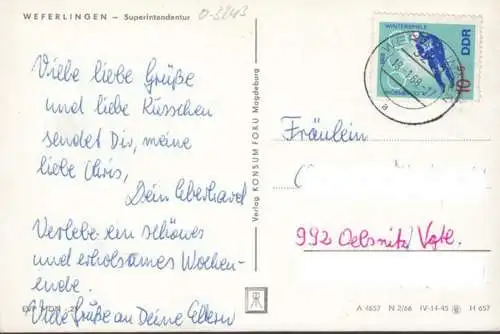 WEFERLINGEN – Superintendentur
Viele liebe Grüße
und liebe Küsschen
sendet Dir, meine
liebe Chris,
Dein Eberhard
Verlebe ein schönes
und erholsames Wochen-
ende.
Viele Grüße an Deine Eltern
EVP MDN
Verlag KONSUM FORU Magdeburg
WINTERSPIELE
DDR
10+5
Fräulein
992 Oelsnitz/Vogtl.
A 4657 N 2/66 IV-14-45 H 657